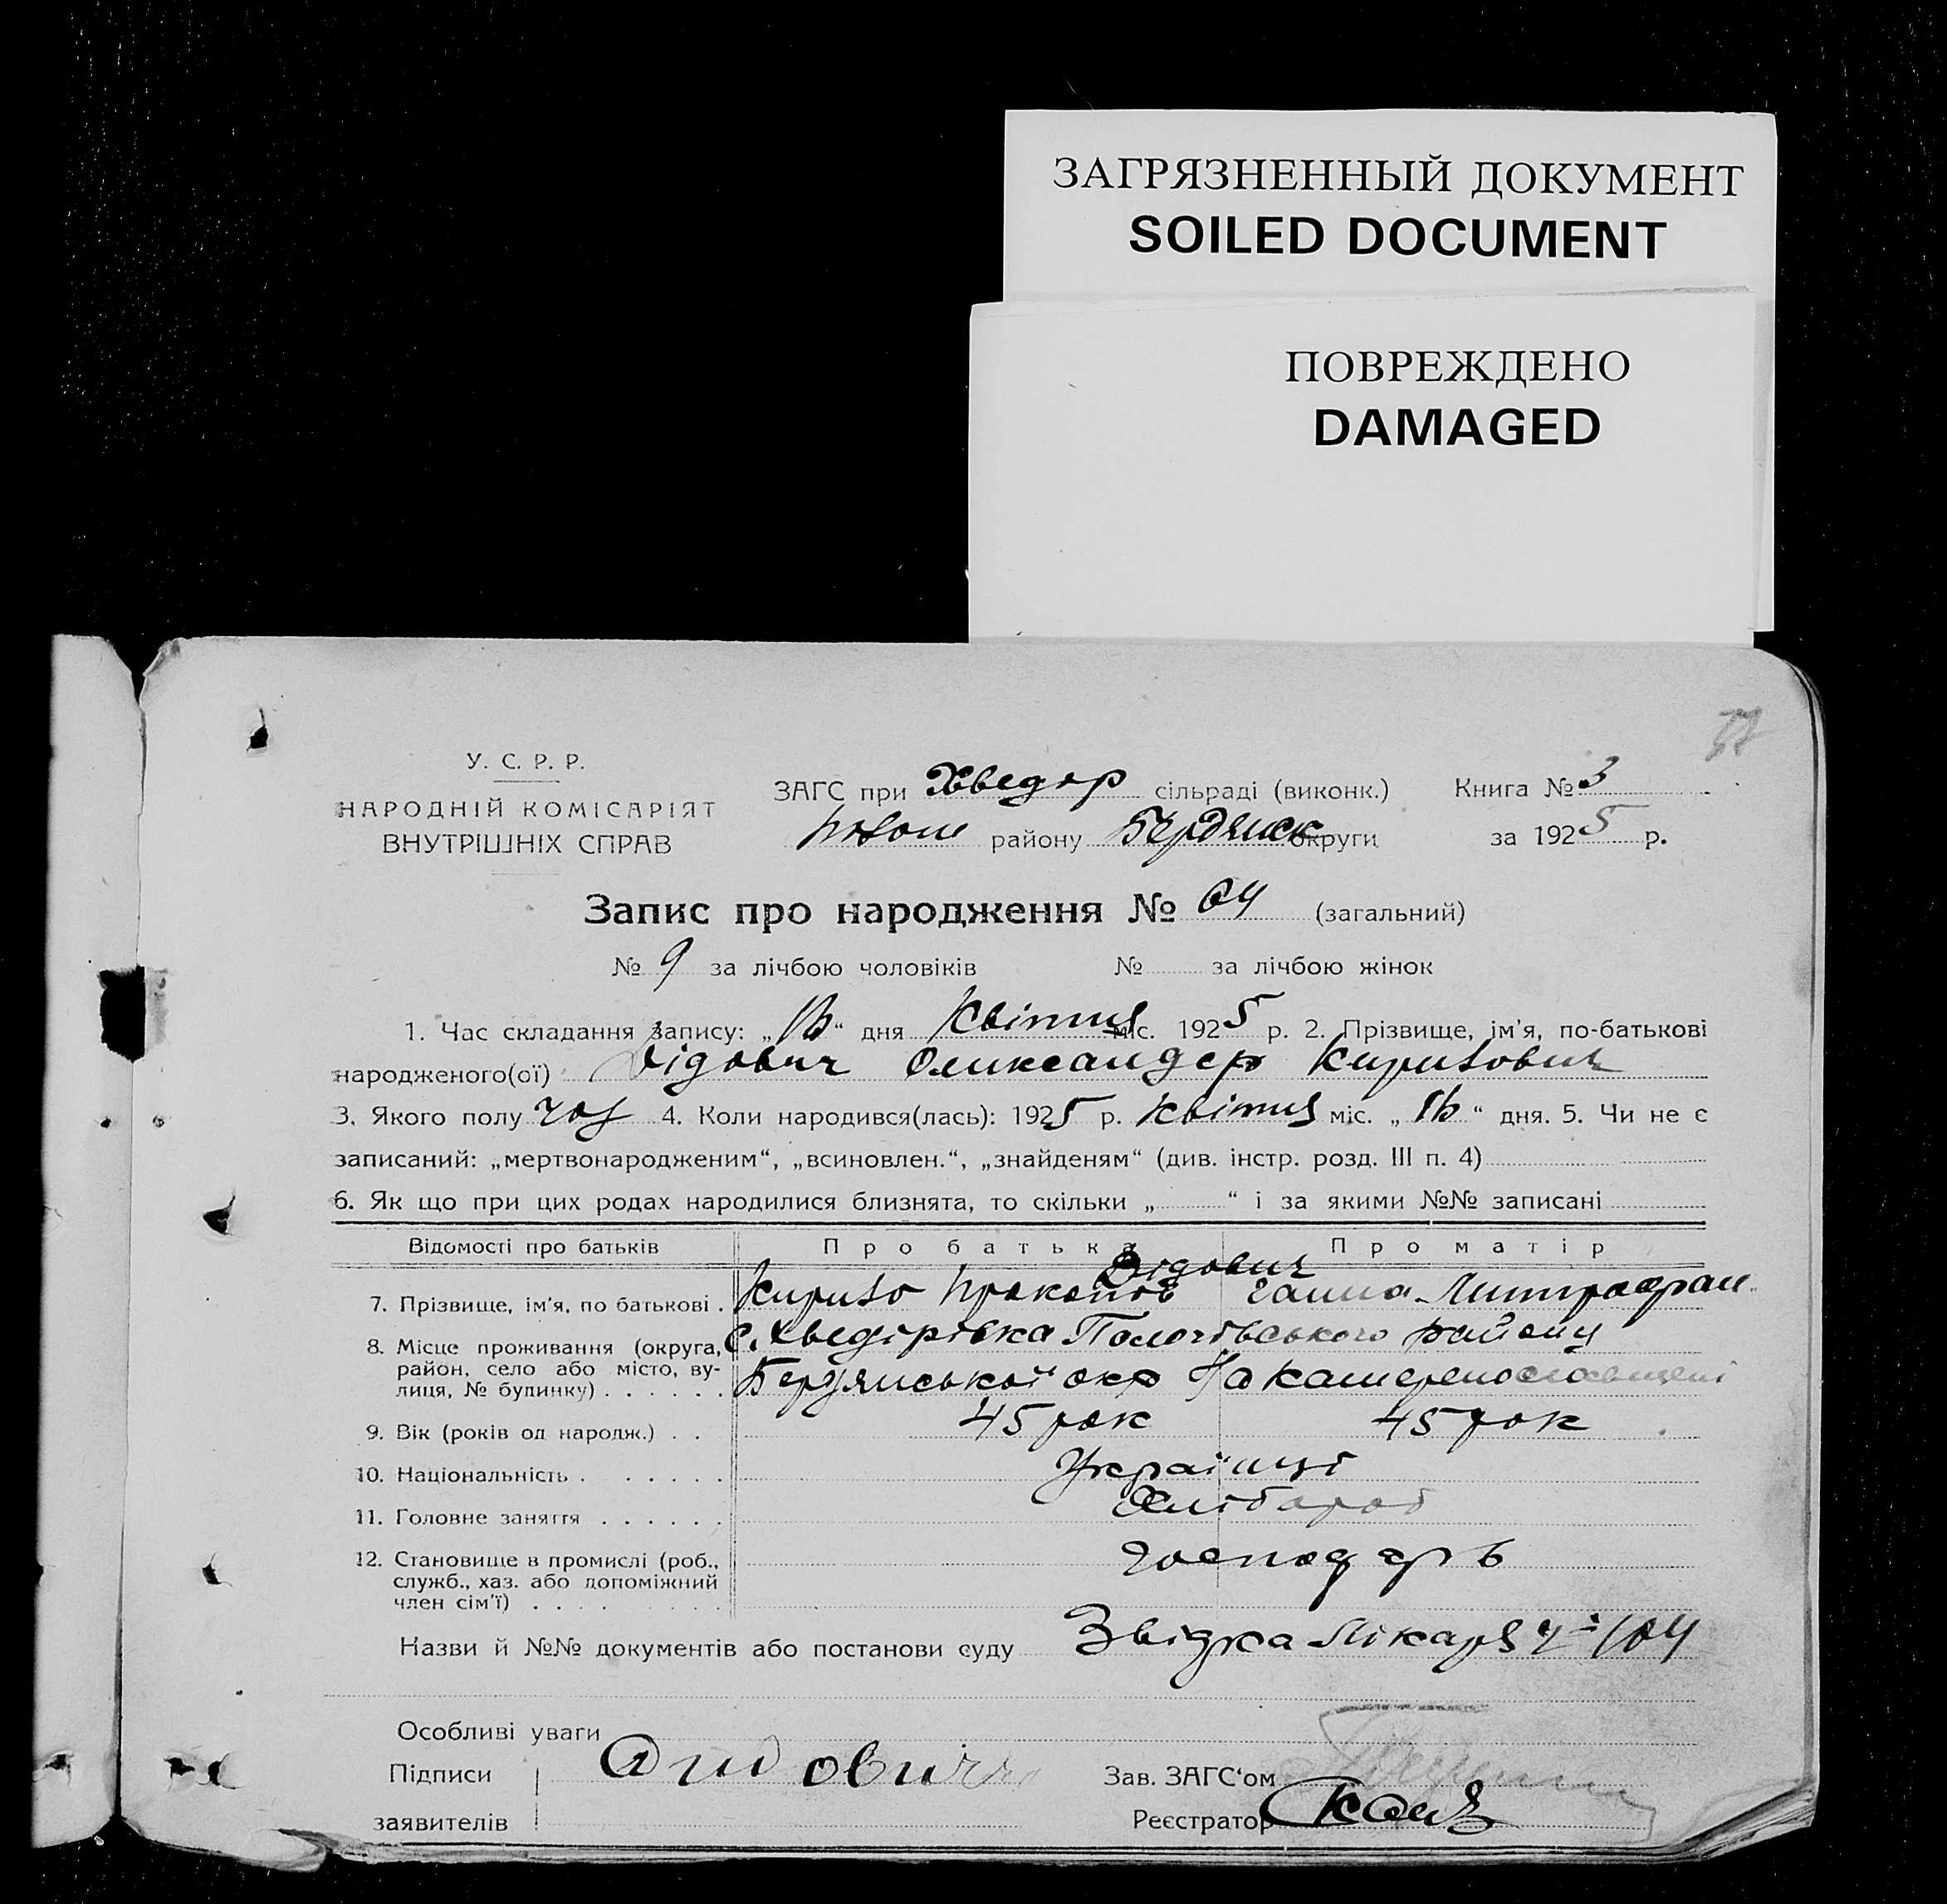 ЗАГРЯЗНЕННЫЙ ДОКУМЕНТ
SOILED DOCUMENT
ПОВРЕЖДЕНО
DAMAGED
У. С. Р. Р.
НАРОДНІЙ КОМІСАРІЯТ
ВНУТРІШНІХ СПРАВ
ЗАГС при Хведор сільраді (виконк.)
району Бердянск округи
Книга № 3
за 1925 р.
Запис про народження № 64 (загальний)
№ 9 за лічбою чоловіків № за лічбою жінок
1. Час складання запису: „ “ дня Квітня міс. 1925 р. 2. Прізвище, ім'я, по-батькові
народженого(ої) Дідович Олександер Кирилович
3. Якого полу чол 4. Коли народився(лась): 1925 р. Квітня міс. „ “ дня. 5. Чи не є
записаний: „мертвонародженим“, „всиновлен.“, „знайденям“ (див. інстр. розд. III п. 4)
6. Як що при цих родах народилися близнята, то скільки „ “ і за якими №№ записані
Відомості про батьків Про батька Про матір
Дідович
7. Прізвище, ім'я, по батькові . Кирило Прокопов Ганна Митрофан
8. Місце проживання (округа, район, село або місто, вулиця, № будинку) . . . . . . с. Хведірівка Пологівського району
Бердянської окр На Катеренославщені
9. Вік (років од народж.) . . 45 рок 45 рок
10. Національність . . . . . . Українці
11. Головне заняття . . . . . . Хлібороб
12. Становище в промислі (роб., служб., хаз. або допоміжний член сім'ї) . . . . господарь
Назви й №№ документів або постанови суду Звідка Лікаря 104
Особливі уваги
Підписи
заявителів
Дидович
Зав. ЗАГС'ом
Реєстратор